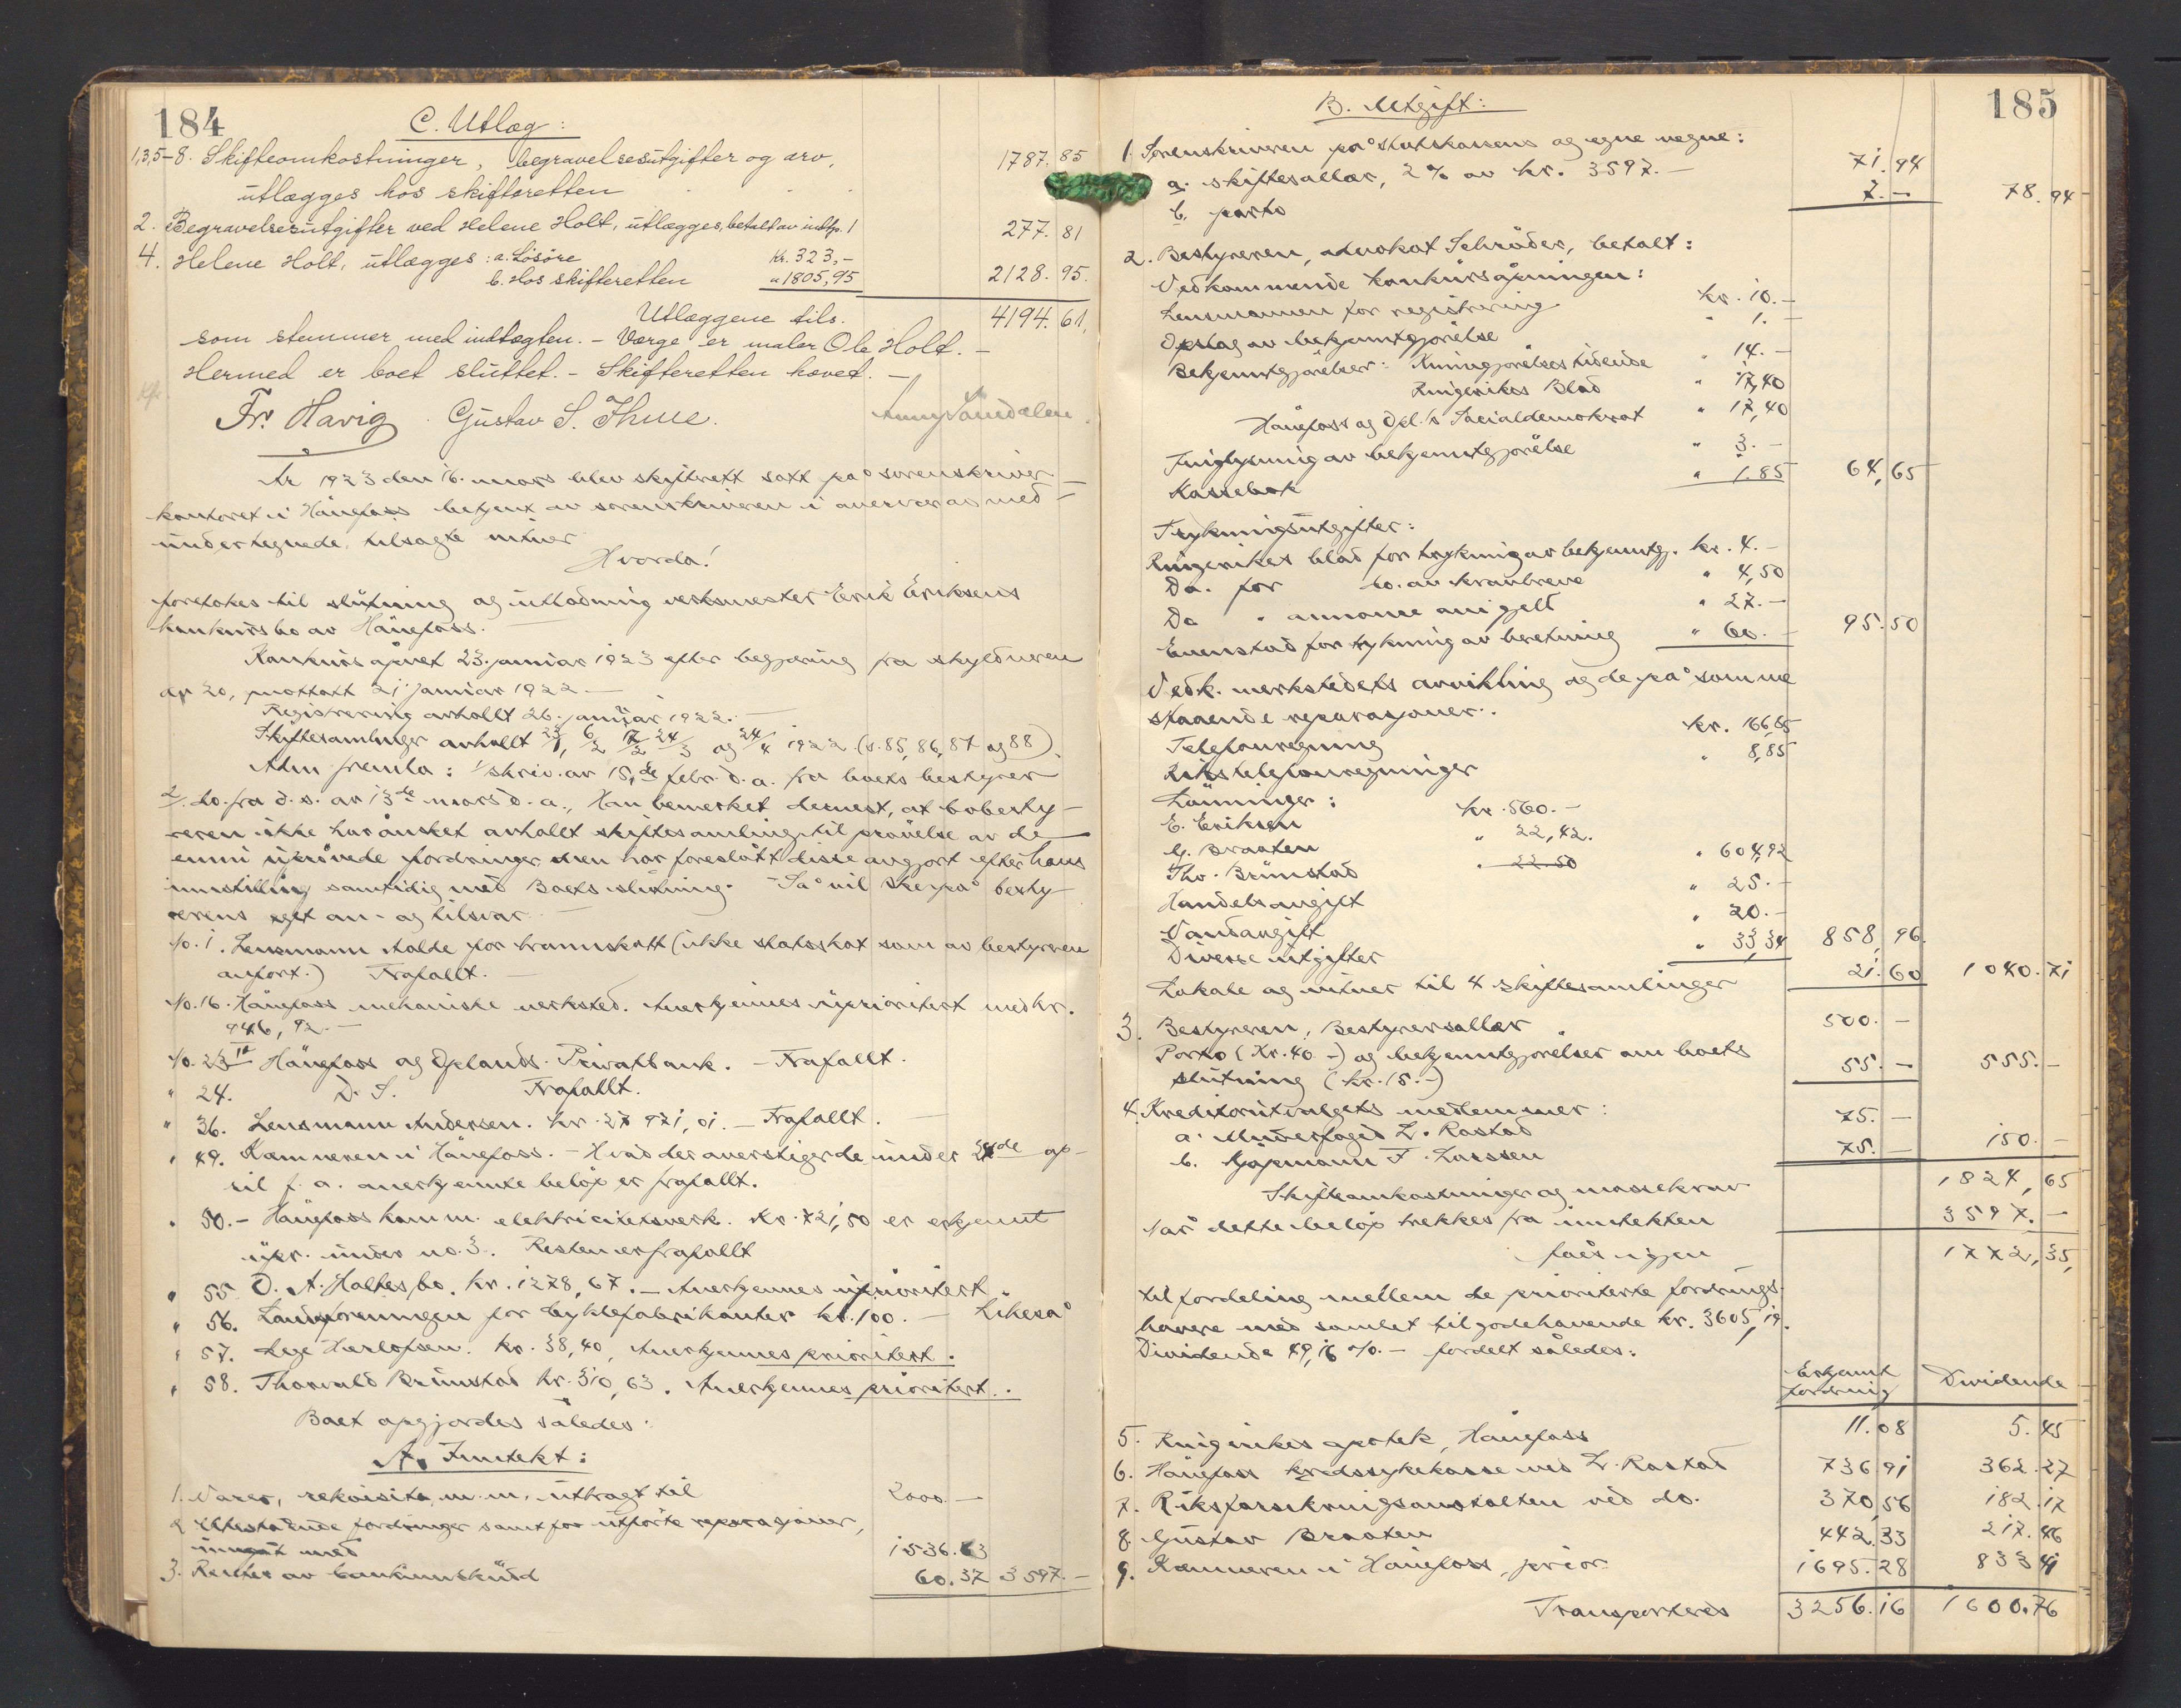 184
C. Utlæg:
1,3,5-8. Skifteomkostninger, begravelsesutgifter og arv,
utlægges hos skifteretten 1787. 85
2. Begravelsesutgifter ved Helene Holt, utlægges, betalt av indtp. 1 277. 81
4. Helene Holt, utlægges: a. Løsøre kr. 323,-
b. Hos skifteretten " 1805,95 2128. 95.
Utlæggene tils. 4194. 61,
som stemmer med indtægten. - Værge er maler Ole Holt. -
Hermed er boet sluttet. - Skifteretten hævet. -
Fr. Havig Gustav S. Thue.
År 1923 den 16. mars blev skifterett satt på sorenskriver-
kontoret i Hønefoss betjent av sorenskriveren i overvær av med-
undertegnede tilsagte vitner
Hvorda!
foretokes til slutning og utlodning verksmester Erik Eriksens
konkursbo av Hønefoss.
Konkurs åpnet 23. januar 1923 efter begjæring fra skyldneren
dp 20, mottatt 21 januar 1922 -
Registrering avholdt 26. januar 1922. -
Skiftesamlinger avholdt 23/1, 6/2 17/2 24/3 og 24/4 1922 (s. 85, 86, 87 og 88)
Adm fremla: 1/ skriv. av 15de febr. d. a. fra boets bestyrer
2/. do. fra d. s. av 13de mars d. a., Han bemerket dernest, at bobesty-
reren ikke har ønsket avholdt skiftesamling til prøvelse av de
ennu uprøvede fordringer men har foreslått disse avgjort efter hans
innstilling samtidig med Boets slutning. Så vil skje på besty-
rerens eget an- og tilsvar. -
No. 1. Lensmann Aalde for brannskatt (ikke statsskat som av bestyreren
anført.) Frafallt. -
No. 16. Hønefoss mekaniske verksted. Anerkjennes uprioritert med kr.
946, 92. -
No. 23 Hønefoss og Oplands Privatbank. - Frafallt.
" 24. D. S. Frafallt.
" 36. Lensmann Andersen. kr. 27 971, 01. - Frafallt.
" 49. Kæmneren i Hønefoss. - Hvad der overstiger de under 24de op-
til f. a. anerkjennte beløp er frafallt.
" 50. - Hønefoss komm. elektricitetsverk. Kr. 721,50 er erkjent
upr. under no. 3. Resten er frafallt
" 55 O. A. Haltes bo. kr. 1278, 67. - Anerkjennes uprioritert
" 56. Landsforeningen for cyklefabrikanter kr. 100. - Likeså
" 57. Læge Herlofsen. kr. 38,40, Anerkjennes prioritert.
" 58. Thorvald Brunstad kr. 310, 63. Anerkjennes prioritert.
Boet opgjordes således:
A. Inntekt:
1. Varer, rekvisita m. m. utbragt til 2000. -
2. Utestående fordringer samt for utførte reparasjoner,
inngåt med 1536. 63
3. Renter av bankinnskudd 60. 37 3597. -
185
B. Utgift:
1. Sorenskriveren på statskassens og egne vegne:
a. skiftesallær, 2% av kr. 3597. - 71. 94
b. porto 7. - 78. 94
2. Bestyreren, advokat Schrøder, betalt:
Vedkommende konkursåpningen:
Lensmannen for registrering kr. 10. -
Opslag av bekjentgjørelse " 1. -
Bekjentgjørelser: Kunngjørelsestidende " 14. -
Ringerikes Blad " 17,40
Hønefoss og Opl.'s Socialdemokrat " 17,40
Tinglysning av bekjentgjørelse " 3. -
Kassebok " 1.85 64, 65
Trykningsutgifter:
Ringerikes blad for trykning av bekjentg. kr. 4. -
Do. for do. av kravbreve " 4,50
Do " annonce om gjeld " 27. -
Evenstad for trykning av beretning " 60. - 95. 50
Vedk. verkstedets avvikling og de på samme
stående reparasjoner:
Telefonregning kr. 166,85
Rikstelefonregninger " 8,85
Lønninger:
E. Eriksen kr. 560. -
G. Braaten " 22, 42.
Tho. Brunstad " 22.50 " 604,92
Handelsavgift " 25. -
Vandavgift " 20. -
Diverse utgifter " 33,34 858, 96.
Lokale og vitner til 4 skiftesamlinger 21. 60 1040. 71
3. Bestyreren, Bestyrersallær 500. -
Porto (Kr. 40. -) og bekjentgjørelser om boets
slutning (kr. 15. -) 55. - 555. -
4. Kreditorutvalgets medlemmer:
a. Underfoged L. Rastad 75. -
b. Kjøpmann F. Larssen 75. - 150. -
Skifteomkostninger og massekrav 1824, 65
Når dette beløp trekkes fra inntekten 3597. -
fåes igjen 1772, 35,
til fordeling mellem de prioriterte fordrings-
havere med samlet tilgodehavende kr. 3605, 19.
Dividende 49,16 %. - fordelt således:
Erkjent fordring Dividende
5. Ringerikes apotek, Hønefoss 11. 08 5. 45
6. Hønefoss kredssykekasse ved L. Rastad 736 91 362. 27
7. Riksforsikringsanstalten ved do. 370, 56 182. 17
8. Gustav Braaten 442, 33 217. 46
9. Kæmneren i Hønefoss, prior 1695. 28 833 41
Transporteres 3256. 16 1600. 76